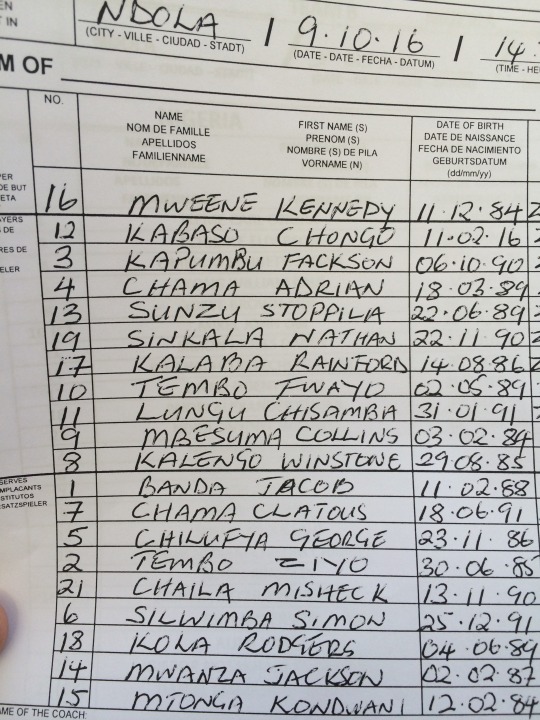 EN
T IN
NDOLA / 9.10.16 / 14.
(CITY - VILLE - CIUDAD - STADT) (DATE - DATE - FECHA - DATUM) (TIME - HE
M OF
NO.
NAME
NOM DE FAMILLE
APELLIDOS
FAMILIENNAME
FIRST NAME (S)
PRENOM (S)
NOMBRE (S) DE PILA
VORNAME (N)
DATE OF BIRTH
DATE DE NAISSANCE
FECHA DE NACIMIENTO
GEBURTSDATUM
(dd/mm/yy)
PER
DE BUT
ETA
16 MWEENE KENNEDY 11.12.84
AYERS
S DE
RES DE
ELER
12 KABASO CHONGO 11.02.16
3 KAPUMBU FACKSON 06.10.90
4 CHAMA ADRIAN 18.03.89
13 SUNZU STOPPILA 22.06.89
19 SINKALA NATHAN 22.11.90
17 KALABA RAINFORD 14.08.86
10 TEMBO FWAYO 02.05.89
11 LUNGU CHISAMBA 31.01.91
9 MBESUMA COLLINS 03.02.84
8 KALENGO WINSTONE 29.08.85
SERVES
MPLACANTS
STITUTOS
RSATZSPIELER
1 BANDA JACOB 11.02.88
7 CHAMA CLATOUS 18.06.91
5 CHILUFYA GEORGE 23.11.86
2 TEMBO ZIYO 30.06.85
21 CHAILA MISHECK 13.11.90
6 SILWIMBA SIMON 25.12.91
18 KOLA RODGERS 04.06.89
14 MWANZA JACKSON 02.02.87
15 MTONGA KONDWANI 12.02.84
AME OF THE COACH: